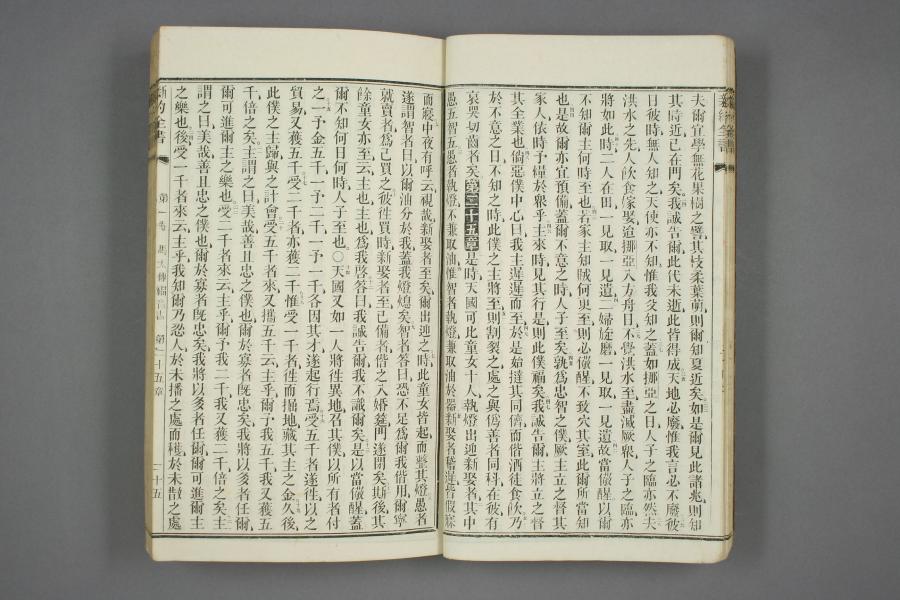 夫爾宜學無花果樹之譬其枝柔葉萌則爾知夏近矣如是爾見此諸兆則知
其時近已在門矣我誠告爾此代未逝此皆得成天地必廢惟我言必不廢彼
日彼時無人知之天使亦不知惟我父知之蓋如挪亞之日人子之臨亦然夫
洪水之先人飲食嫁娶迨挪亞入方舟日不覺洪水至盡滅厥眾人子之臨亦
將如此時二人在田一見取一見遺二婦旋磨一見取一見遺故當儆醒以爾
不知爾主何時至也若家主知賊何更至則必儆醒不致穴其室此爾所當知
也是故爾亦宜預備蓋爾不意之時人子至矣孰為忠智之僕厥主立之督其
家人依時予糧於眾乎主來時見其行是則此僕福矣我誠告爾主將立之督
其全業也倘惡僕中心曰我主遲遲而至於是始撻其同儕而偕酒徒食飲乃
於不意之日不知之時此僕之主將至則割裂之處之與偽善者同科在彼有
哀哭切齒者矣第二十五章是時天國可比童女十人執燈出迎新娶者其中
愚五智五愚者執燈不兼取油惟智者執燈兼取油於器新娶者稽遲皆假寐
而寢中夜有呼云視哉新娶者至矣爾出迎之時此童女皆起而整其燈愚者
遂謂智者曰以爾油分於我蓋我燈熄矣智者答曰恐不足為爾我偕用爾寧
就賣者為己買之彼徃買時新娶者至已備者偕之入婚筵門遂閉矣斯後其
餘童女亦至云主也主也為我啓答曰我誠告爾我不識爾矣是以當儆醒蓋
爾不知何日何時人子至也○天國又如一人將徃異地召其僕以所有者付
之一予金五千一予二千一予一千各因其才遂起行焉受五千者遂徃以之
貿易又獲五千受二千者亦獲二千惟受一千者徃而掘地藏其主之金久後
此僕之主歸與之計會受五千者來又攜五千云主乎爾予我五千我又獲五
千倍之矣主謂之曰美哉善且忠之僕也爾於寡者既忠矣我將以多者任爾
爾可進爾主之樂也受二千者來云主乎爾予我二千我又獲二千倍之矣主
謂之曰美哉善且忠之僕也爾於寡者既忠矣我將以多者任爾爾可進爾主
之樂也後受一千者來云主乎我知爾乃忍人於未播之處而穫於未散之處
新約全書 第一卷 馬太傳福音書 第二十五章 二十五